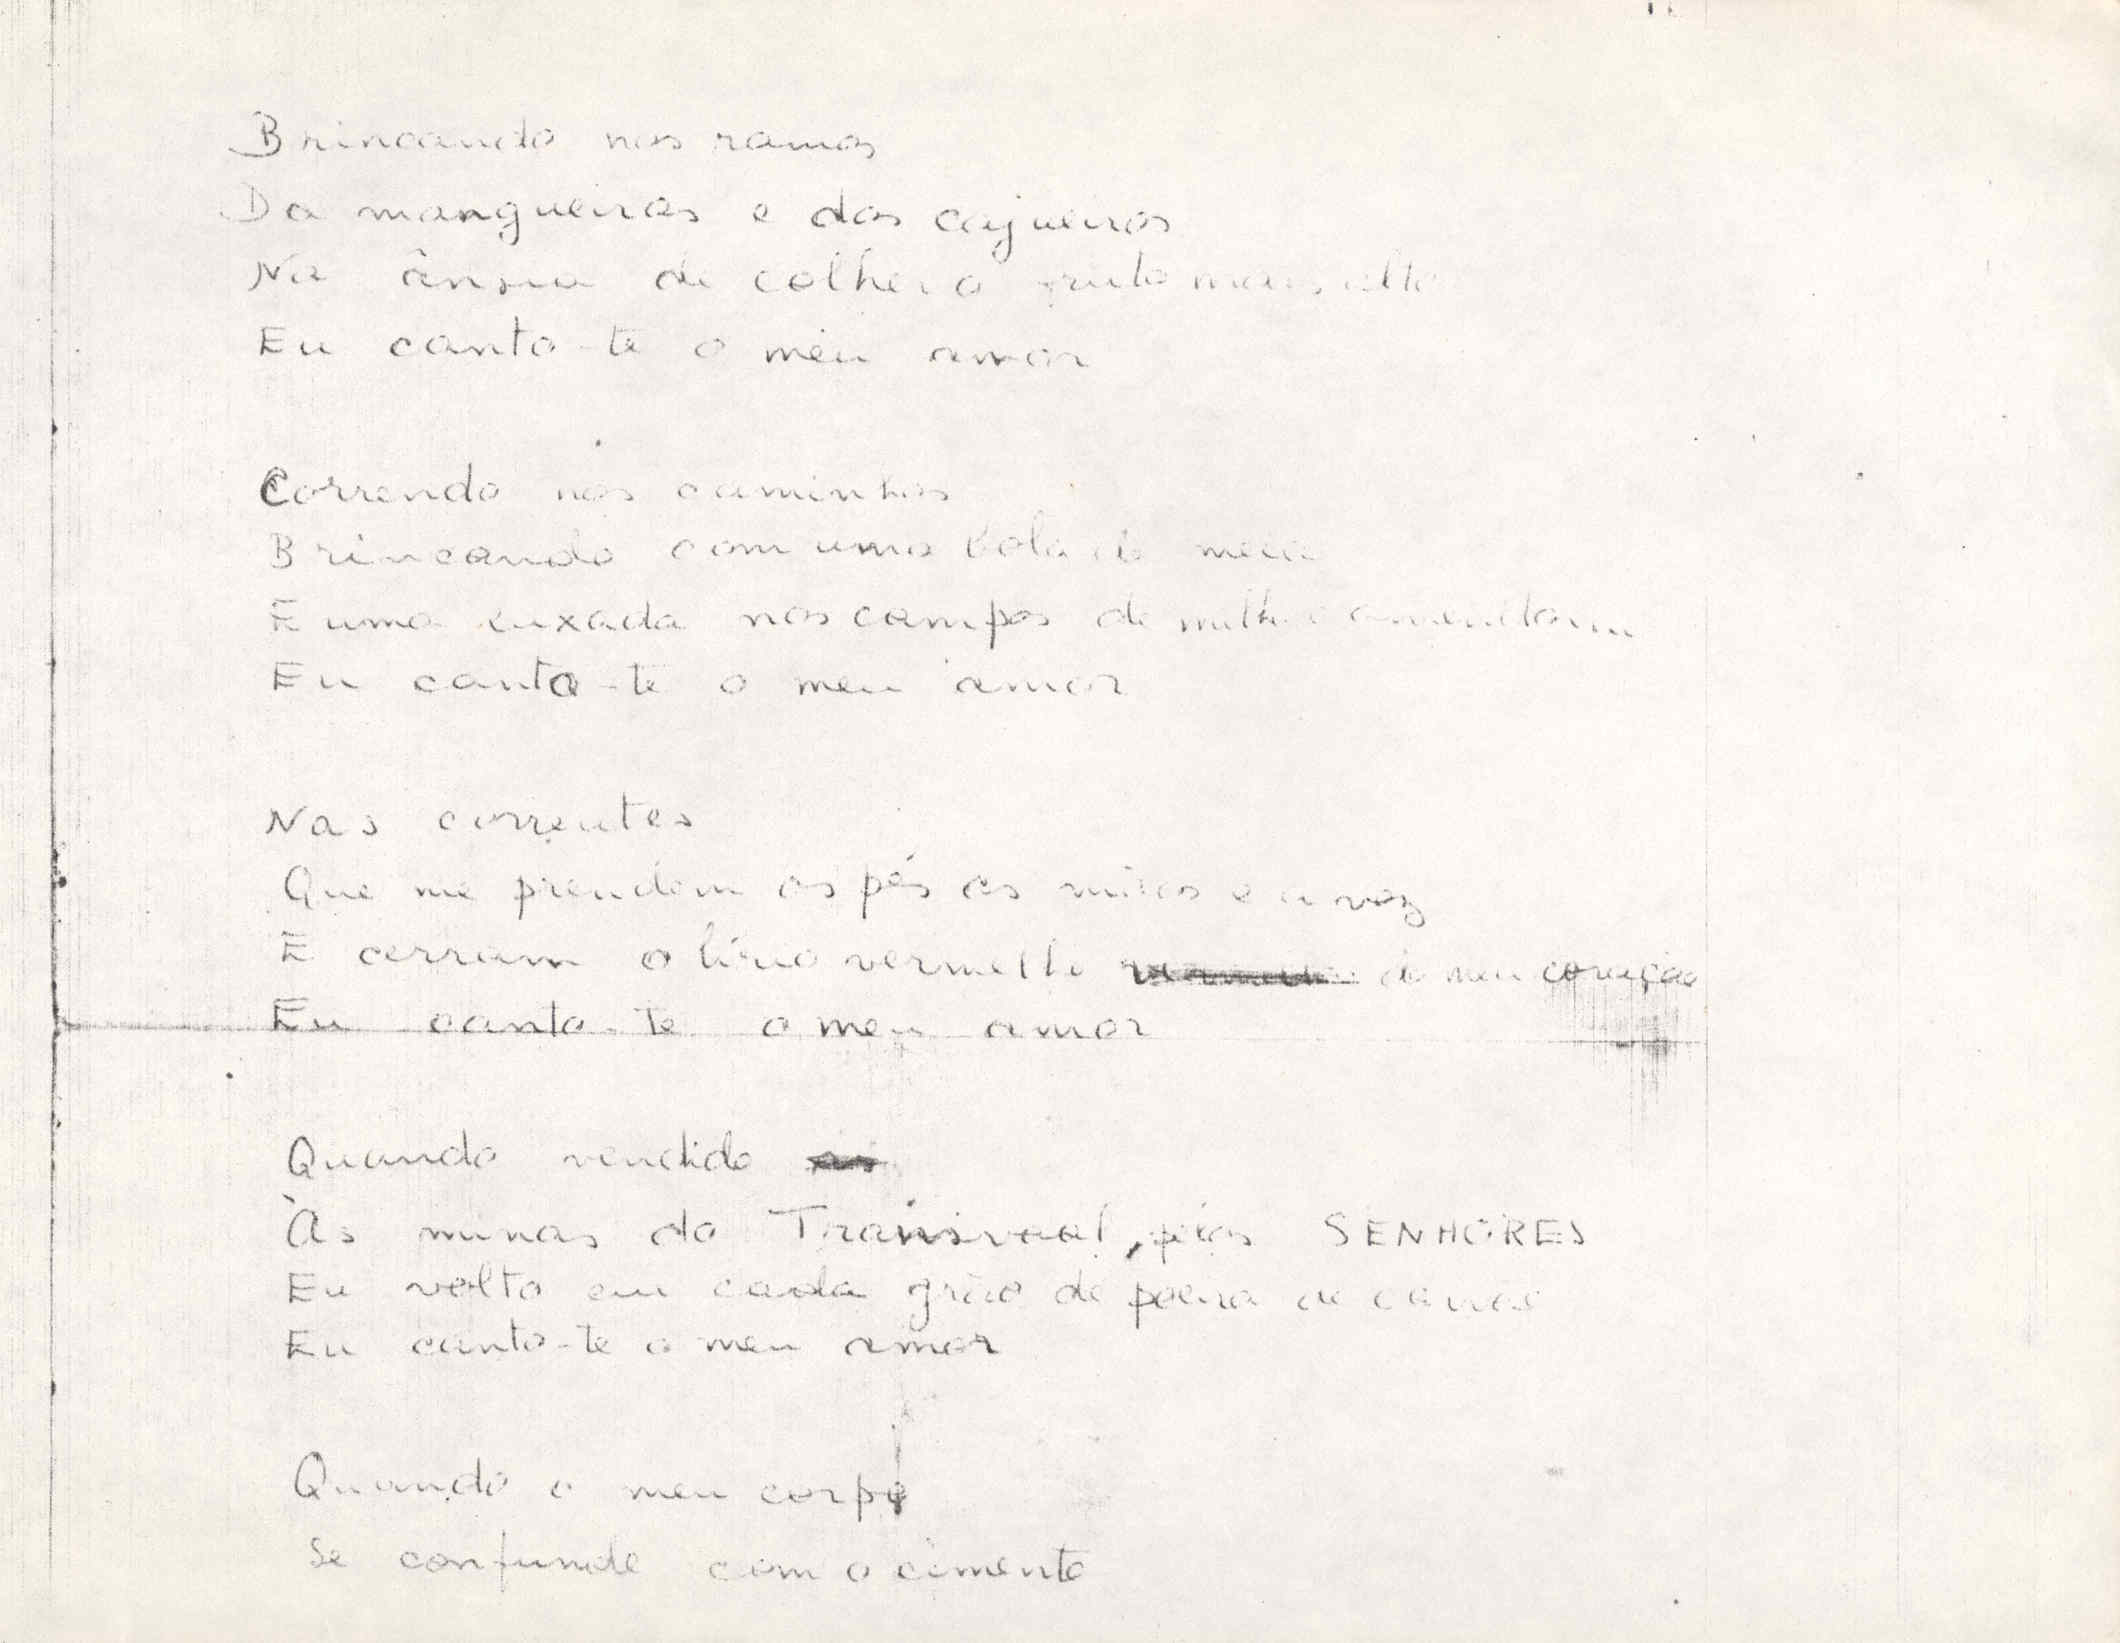 Brincando nos ramos
Da mangueiras e dos cajueiros
Na ânsia de colher o fruto mais alto
Eu canto-te o meu amor
Correndo nos caminhos
Brincando com uma bola de meia
E uma enxada nos campos de milho e amendoim
Eu canto-te o meu amor
Nas correntes
Que me prendem os pés as mãos e a voz
E cerram o lírio vermelho do meu coração
Eu canto-te o meu amor
Quando vendido as
Às minas do Transvaal, pelos SENHORES
Eu volto em cada grão de poeira de carvão
Eu canto-te o meu amor
Quando o meu corpo
Se confunde com o cimento